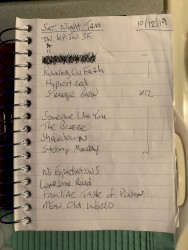 Sat Night Jam 10/12/19
TW KP SW SE
A
Running On Faith
Hypnotized
Strange Brew x12
Someone Like You
The Breeze
Showdown
Stormy Monday
No Expectations
Lonesome Road
Familiar Taste of Poison
Mean Old World